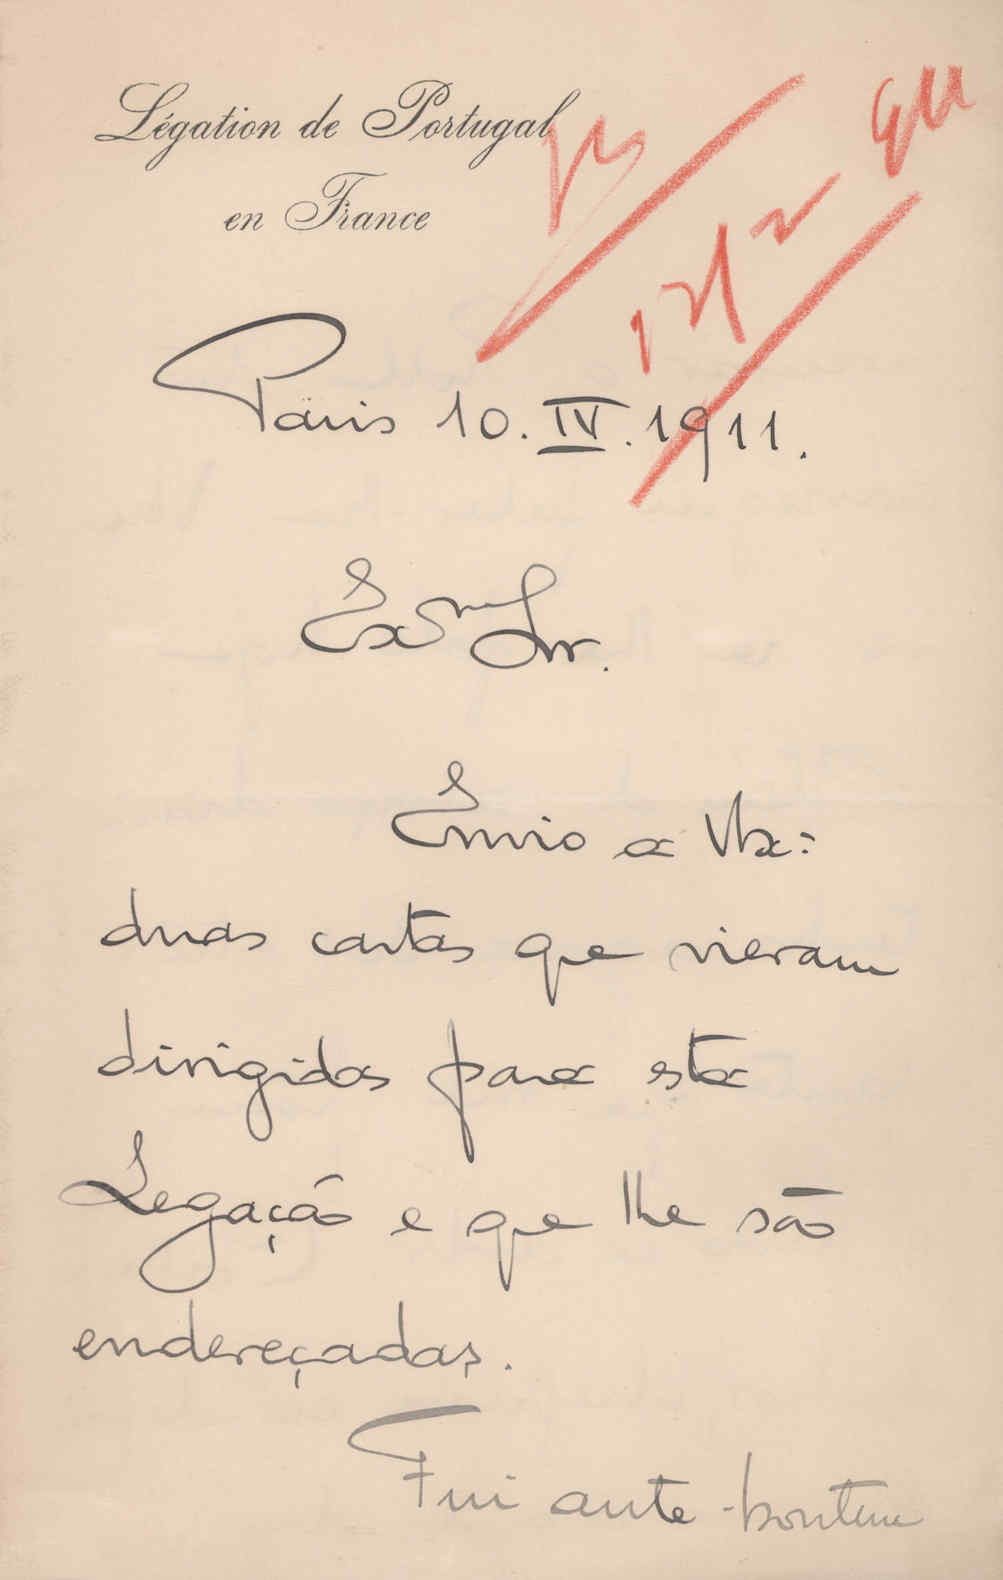 Légation de Portugal
en France
Paris 10. IV. 1911.
Exmo Sr.
Envio a VEx:
duas cartas que vieram
dirigidas para esta
Legação e que lhe são
endereçadas.
Fui ante-hontem